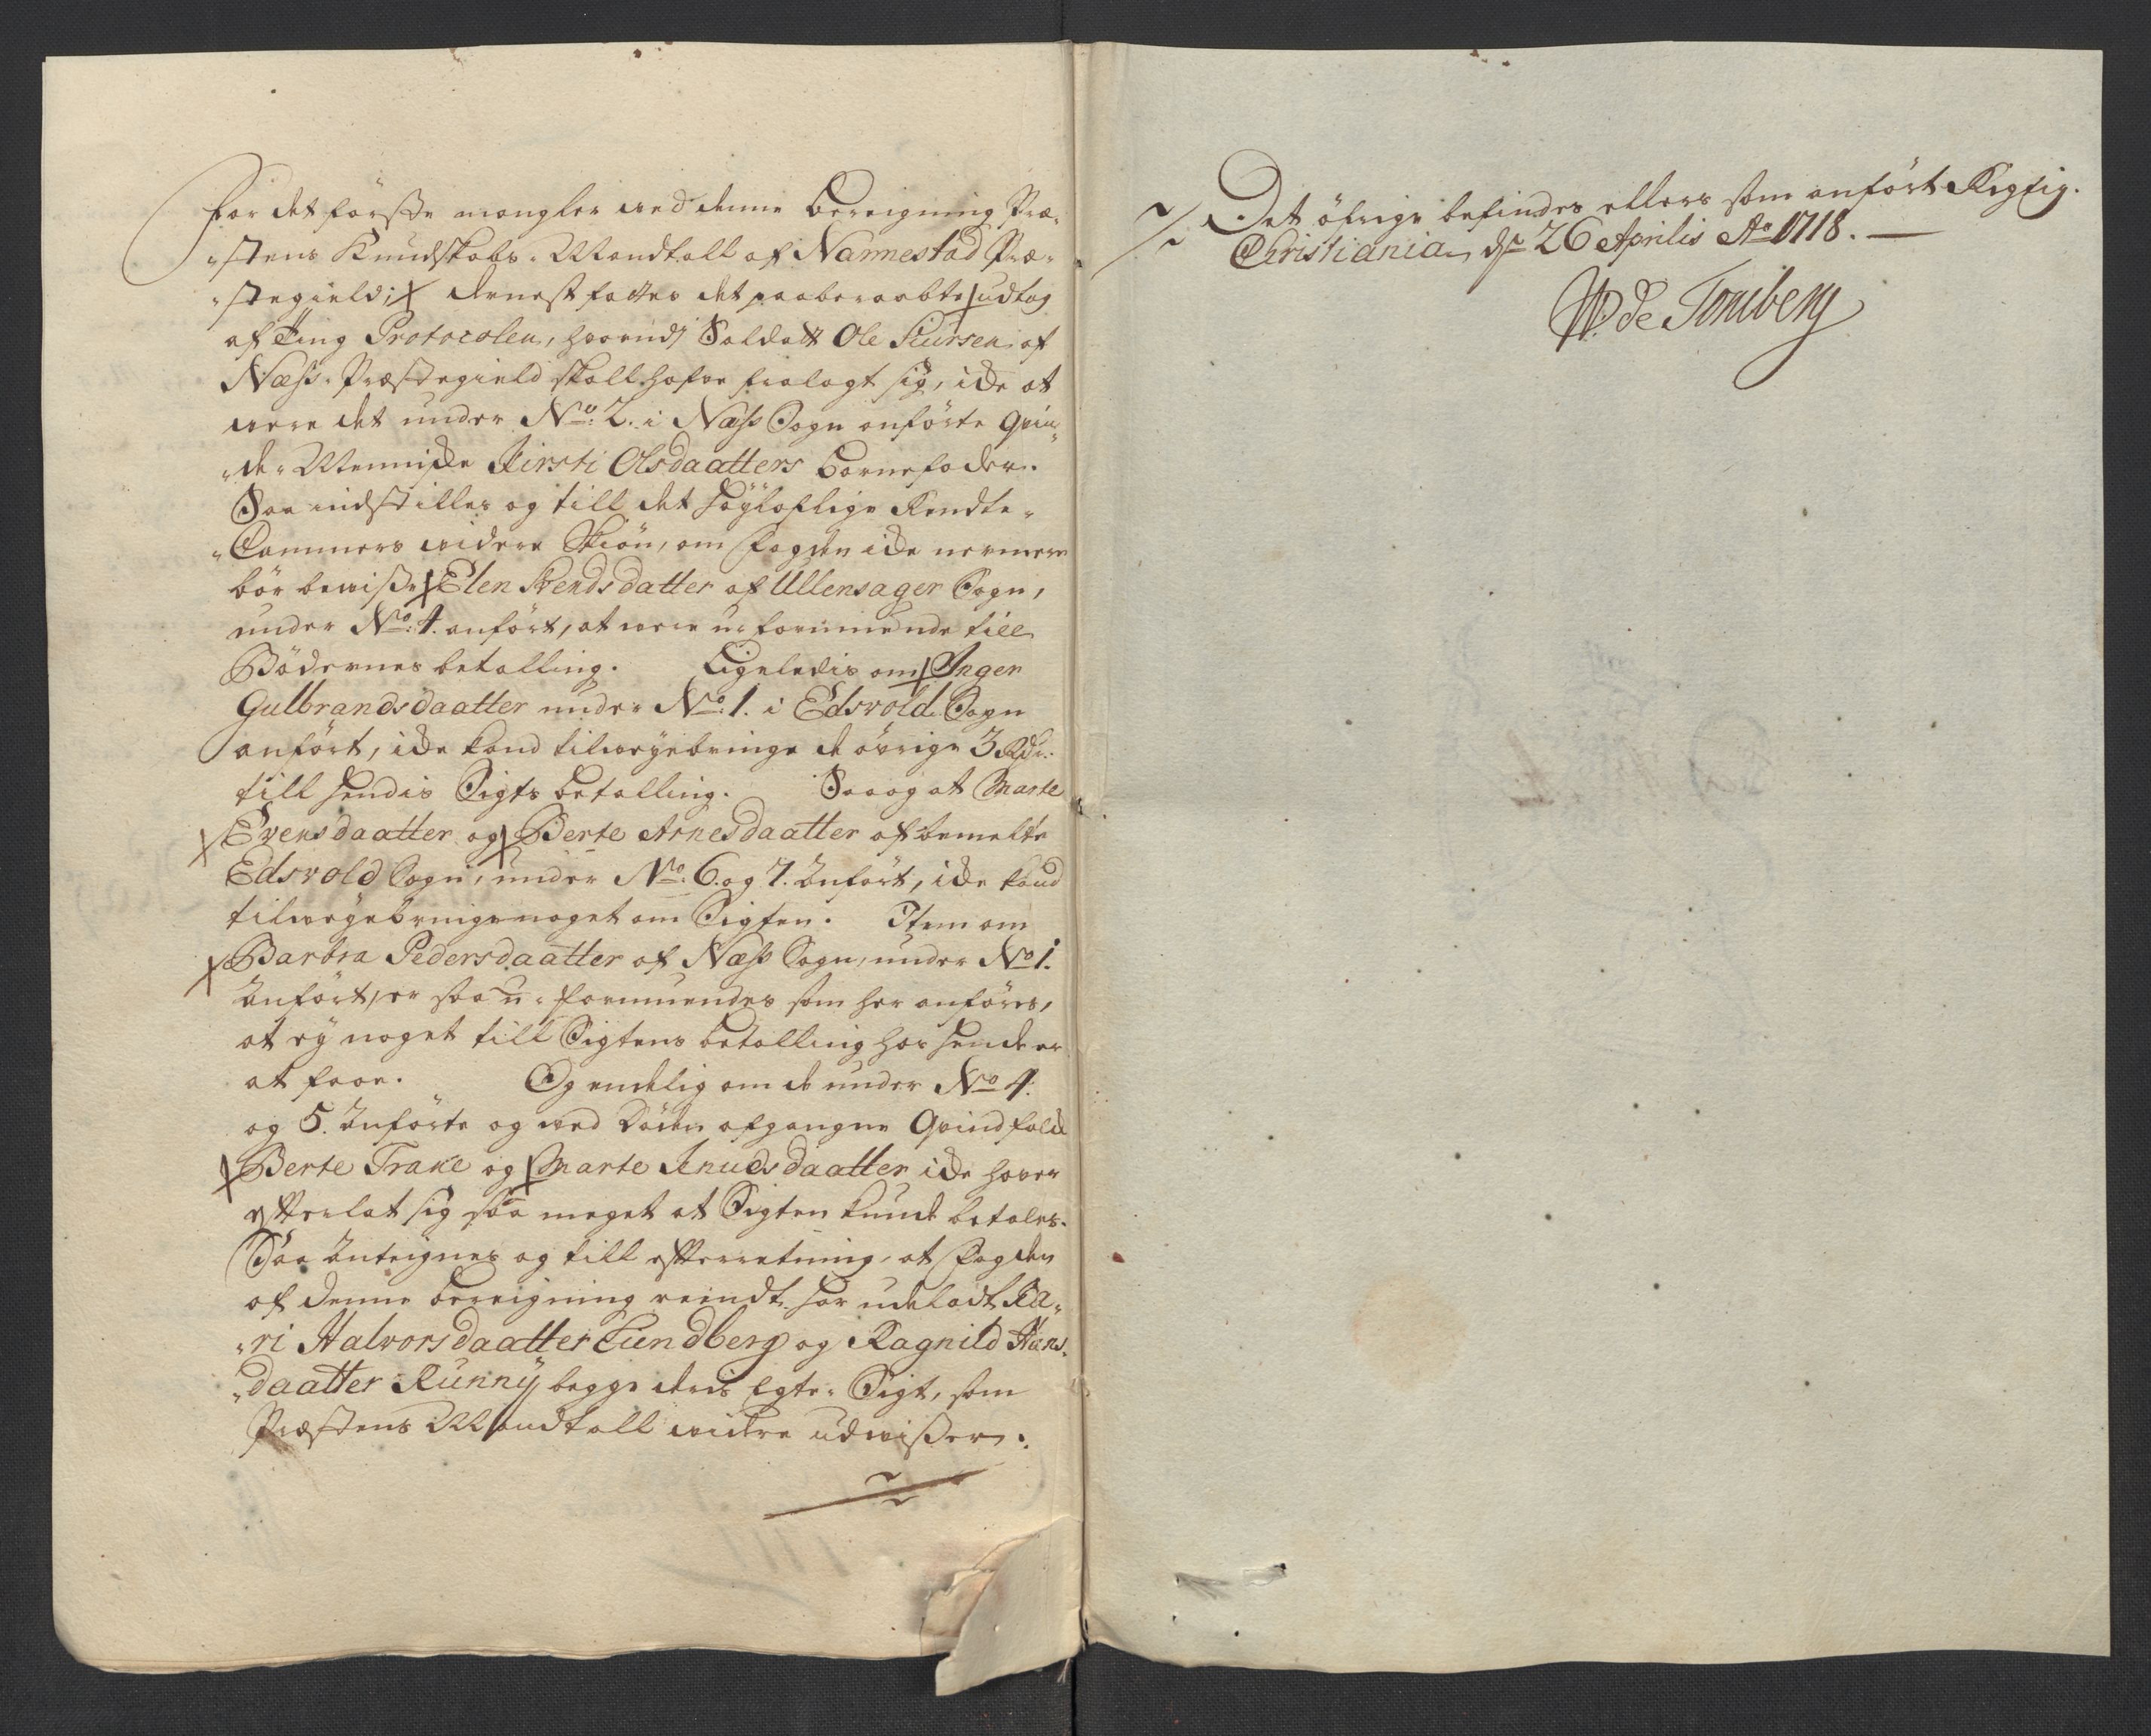 For det förste mangler ved denne bereigning Præ-
-stens Kundskabs-Mandtall af Nannestad Præ-
-stegield; dernest fattes det paaberaabte udtog
af Ting Protocolen, hvorudj Soldatt Ole Siursen af
Næss Præstegield skall hafve fralagt sig, icke at
være det under No: 2. i Næss Sogn anförte Qvin-
-de-Menniske Kirsti Olsdaatters barnefader.
Saa indstilles og till det höyloflige Rendte-
-Cammers videre Skiön, om Fogden icke nermere
bör bevisse Elen Svendsdatter af Ullensager Sogn,
under No: 4. anfört, at være u-formuende till
Bödernes betalling. Ligeledis om Inger
Gulbrandsdaatter under No: 1. i Edsvold Sogn
anfört, icke kand tilveyebringe de övrige 3 Rdr.
till hendis Sigts betalling. Saa og at Marte
Evensdaatter og Berte Arnesdaatter af bemelte
Edsvold Sogn, under No: 6. og 7. anfört, icke kand
tilveyebringe noget om Sigten. Item om
Barbra Pedersdaatter af Næss Sogn, under No 1.
anfört, er saa u-formuendes som her anföres,
at ey noget till Sigtens betalling hos hende er
at faae. Og endelig om de under No 4.
og 5. anförte og ved Döden afgangne Qvindfolck
Berte Trane og Marte Knudsdaatter icke haver
efterlat sig saa meget at Sigten kunde betales.
Saa anteignes og till efterretning, at Fogden
af denne bereigning reindt har udeladt Ka-
-ri Halvorsdaatter Lundberg og Ragnild Hans-
-daatter Runny, begge deris Egte-Sigt, som
Præstens Mandtall videre udvisser.
Det öfrige befindes ellers som anfört Rigtig.
Christiania, de 26 Aprilis Ao 1718.
WP de Tonsberg